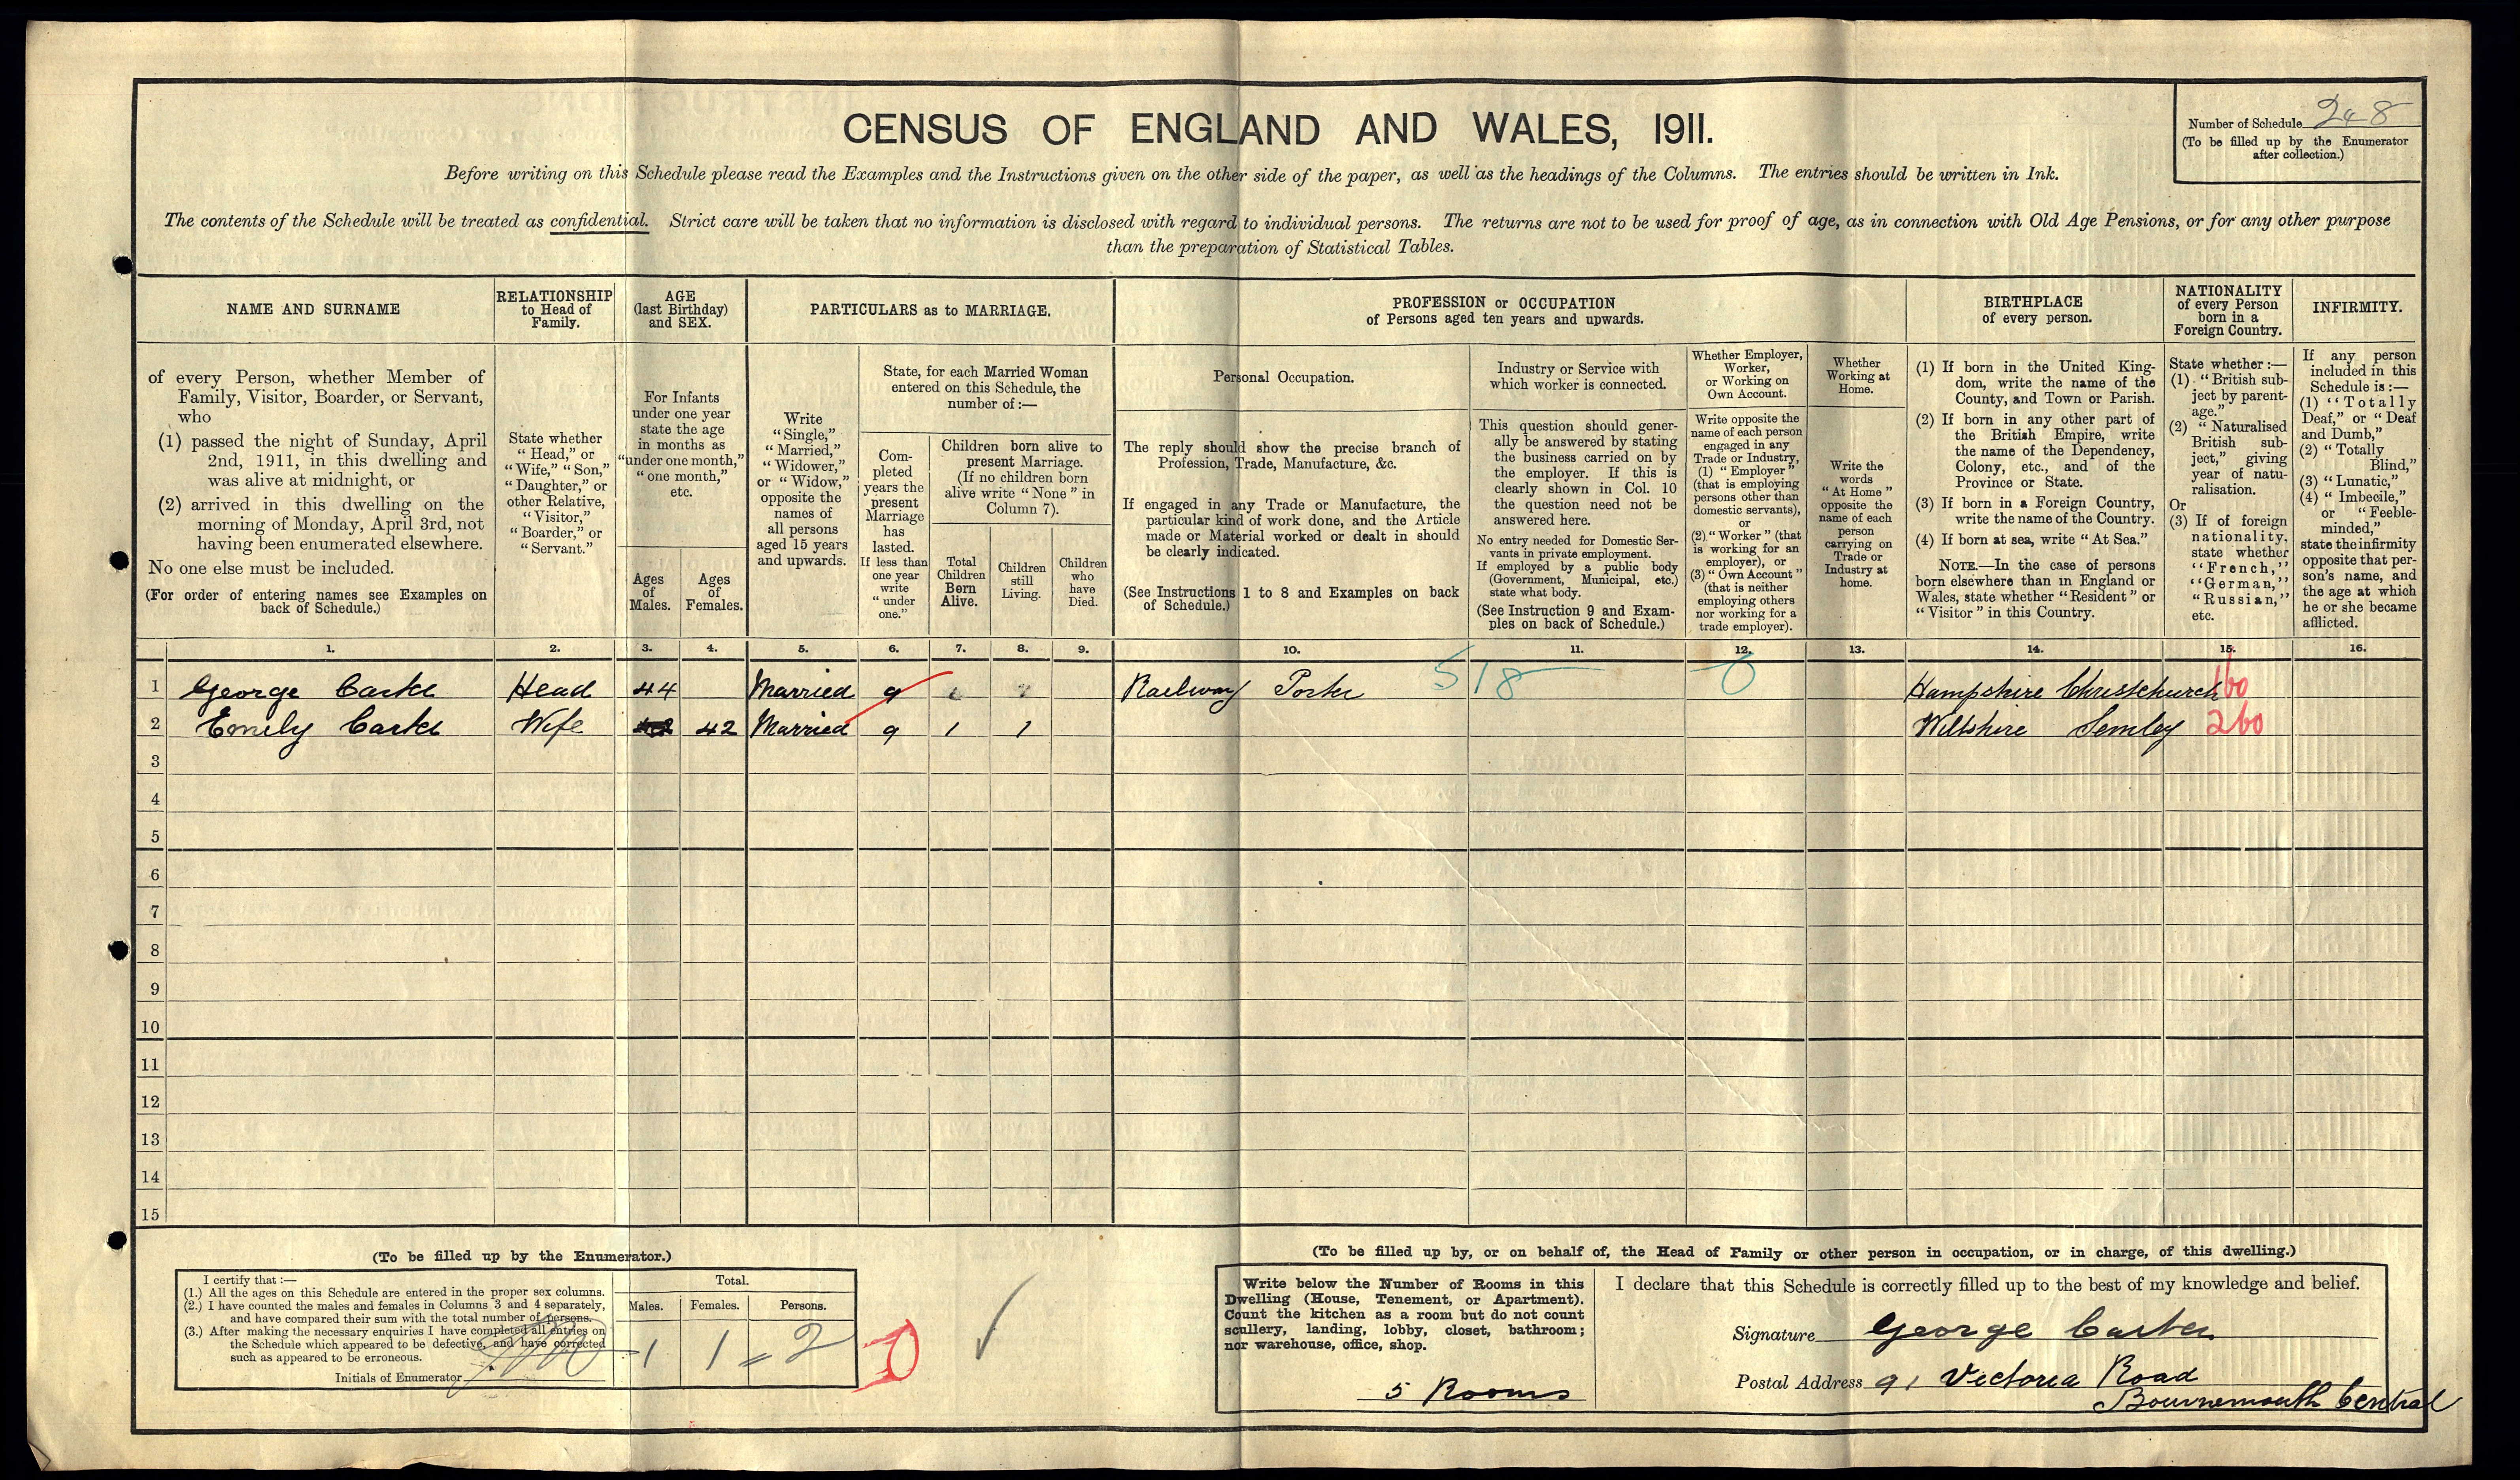 CENSUS OF ENGLAND AND WALES, 1911.
Number of Schedule 248
(To be filled up by the Enumerator
after collection.)
Before writing on this Schedule please read the Examples and the Instructions given on the other side of the paper, as well as the headings of the Columns. The entries should be written in Ink.
The contents of the Schedule will be treated as confidential. Strict care will be taken that no information is disclosed with regard to individual persons. The returns are not to be used for proof of age, as in connection with Old Age Pensions, or for any other purpose
than the preparation of Statistical Tables.
NAME AND SURNAME
of every Person, whether Member of
Family, Visitor, Boarder, or Servant,
who
(1) passed the night of Sunday, April
2nd, 1911, in this dwelling and
was alive at midnight, or
(2) arrived in this dwelling on the
morning of Monday, April 3rd, not
having been enumerated elsewhere.
No one else must be included.
(For order of entering names see Examples on
back of Schedule.)
RELATIONSHIP
to Head of
Family.
State whether
"Head," or
"Wife," "Son,"
"Daughter," or
other Relative,
"Visitor,"
"Boarder," or
"Servant."
AGE
(last Birthday)
and SEX.
For Infants
under one year
state the age
in months as
"under one month,"
"one month,"
etc.
Ages
of
Males.
Ages
of
Females.
PARTICULARS as to MARRIAGE.
Write
"Single,"
"Married,"
"Widower,"
or "Widow,"
opposite the
names of
all persons
aged 15 years
and upwards.
State, for each Married Woman
entered on this Schedule, the
number of:—
Com-
pleted
years the
present
Marriage
has
lasted.
If less than
one year
write
"under
one."
Children born alive to
present Marriage.
(If no children born
alive write "None" in
Column 7).
Total
Children
Born
Alive.
Children
still
Living.
Children
who
have
Died.
PROFESSION or OCCUPATION
of Persons aged ten years and upwards.
Personal Occupation.
The reply should show the precise branch of
Profession, Trade, Manufacture, &c.
If engaged in any Trade or Manufacture, the
particular kind of work done, and the Article
made or Material worked or dealt in should
be clearly indicated.
(See Instructions 1 to 8 and Examples on back
of Schedule.)
Industry or Service with
which worker is connected.
This question should gener-
ally be answered by stating
the business carried on by
the employer. If this is
clearly shown in Col. 10
the question need not be
answered here.
No entry needed for Domestic Ser-
vants in private employment.
If employed by a public body
(Government, Municipal, etc.)
state what body.
(See Instruction 9 and Exam-
ples on back of Schedule.)
Whether Employer,
Worker,
or Working on
Own Account.
Write opposite the
name of each person
engaged in any
Trade or Industry,
(1) "Employer"
(that is employing
persons other than
domestic servants),
or
(2) "Worker" (that
is working for an
employer), or
(3) "Own Account"
(that is neither
employing others
nor working for a
trade employer).
Whether
Working at
Home.
Write the
words
"At Home"
opposite the
name of each
person
carrying on
Trade or
Industry at
home.
BIRTHPLACE
of every person.
(1) If born in the United King-
dom, write the name of the
County, and Town or Parish.
(2) If born in any other part of
the British Empire, write
the name of the Dependency,
Colony, etc., and of the
Province or State.
(3) If born in a Foreign Country,
write the name of the Country.
(4) If born at sea, write "At Sea."
NOTE.—In the case of persons
born elsewhere than in England or
Wales, state whether "Resident" or
"Visitor" in this Country.
NATIONALITY
of every Person
born in a
Foreign Country.
State whether:—
(1) "British sub-
ject by parent-
age."
(2) "Naturalised
British sub-
ject," giving
year of natu-
ralisation.
Or
(3) If of foreign
nationality,
state whether
"French,"
"German,"
"Russian,"
etc.
INFIRMITY.
If any person
included in this
Schedule is:—
(1) "Totally
Deaf," or "Deaf
and Dumb,"
(2) "Totally
Blind,"
(3) "Lunatic,"
(4) "Imbecile,"
or "Feeble-
minded,"
state the infirmity
opposite that per-
son's name, and
the age at which
he or she became
afflicted.
1. 2. 3. 4. 5. 6. 7. 8. 9. 10. 11. 12. 13. 14. 15. 16.
1 George Carter Head 44 Married 9 Railway Porter 518 0 Hampshire Christchurch 160
2 Emily Carter Wife 42 Married 9 1 1 Wiltshire Semley 260
3
4
5
6
7
8
9
10
11
12
13
14
15
(To be filled up by the Enumerator.)
I certify that:—
(1.) All the ages on this Schedule are entered in the proper sex columns.
(2.) I have counted the males and females in Columns 3 and 4 separately,
and have compared their sum with the total number of persons.
(3.) After making the necessary enquiries I have completed all entries on
the Schedule which appeared to be defective, and have corrected
such as appeared to be erroneous.
Initials of Enumerator
Total.
Males. Females. Persons.
1 1 = 2
(To be filled up by, or on behalf of, the Head of Family or other person in occupation, or in charge, of this dwelling.)
Write below the Number of Rooms in this
Dwelling (House, Tenement, or Apartment).
Count the kitchen as a room but do not count
scullery, landing, lobby, closet, bathroom;
nor warehouse, office, shop.
5 Rooms
I declare that this Schedule is correctly filled up to the best of my knowledge and belief.
Signature George Carter
Postal Address 91 Victoria Road
Bournemouth Central